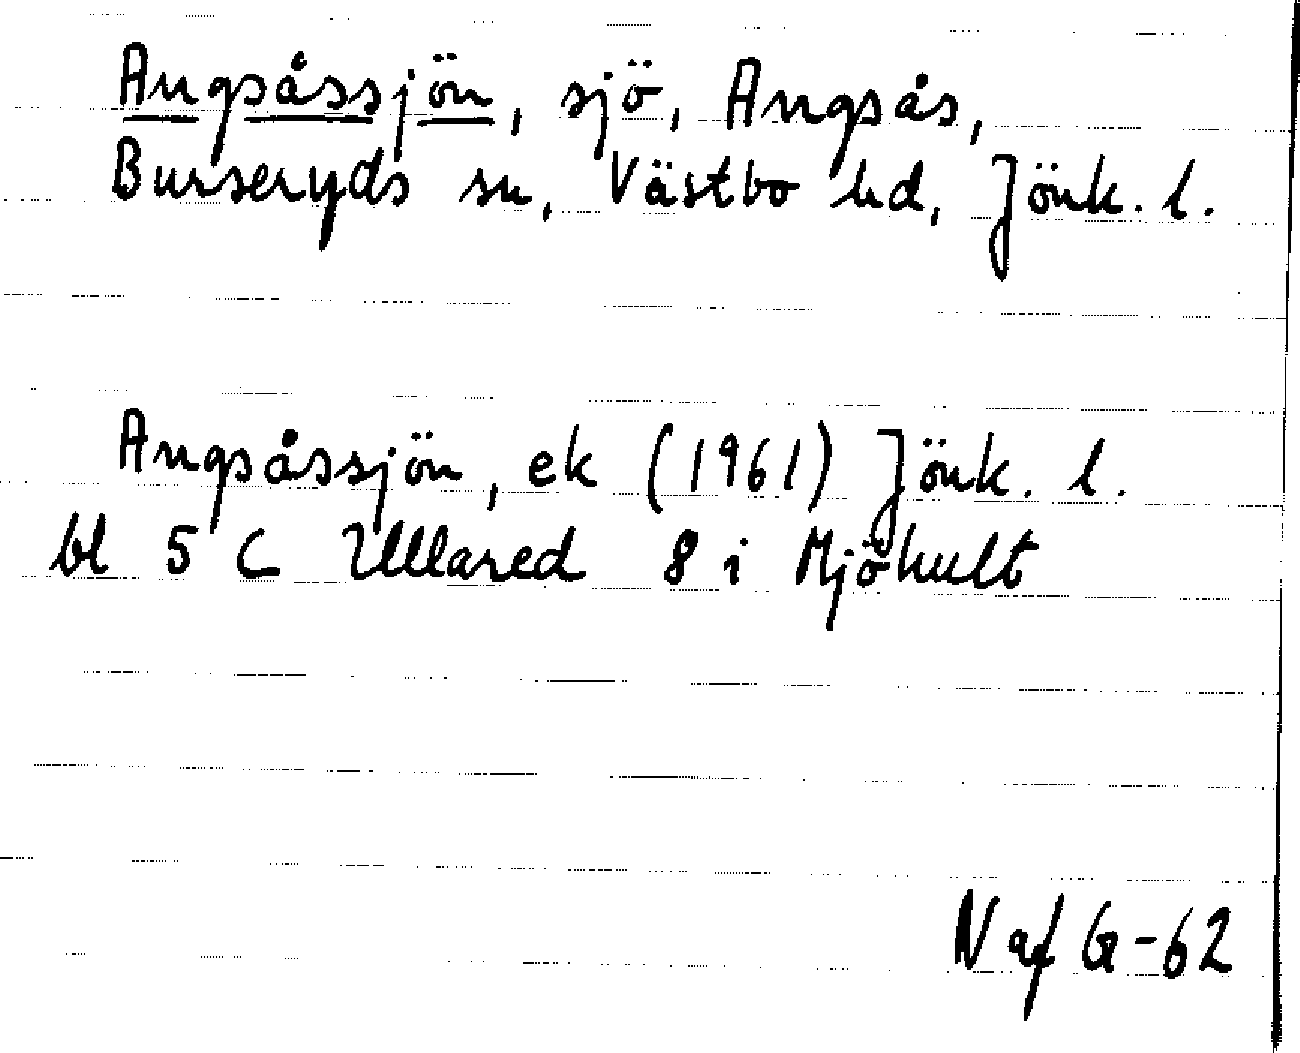 Angsåssjön, sjö, Angsås,
Burseryds sn, Västbo hd, Jönk. l.
Angsåssjön, ek (1961) Jönk. l.
bl 5 C Ullared 8 i Mjöhult
N af G-62